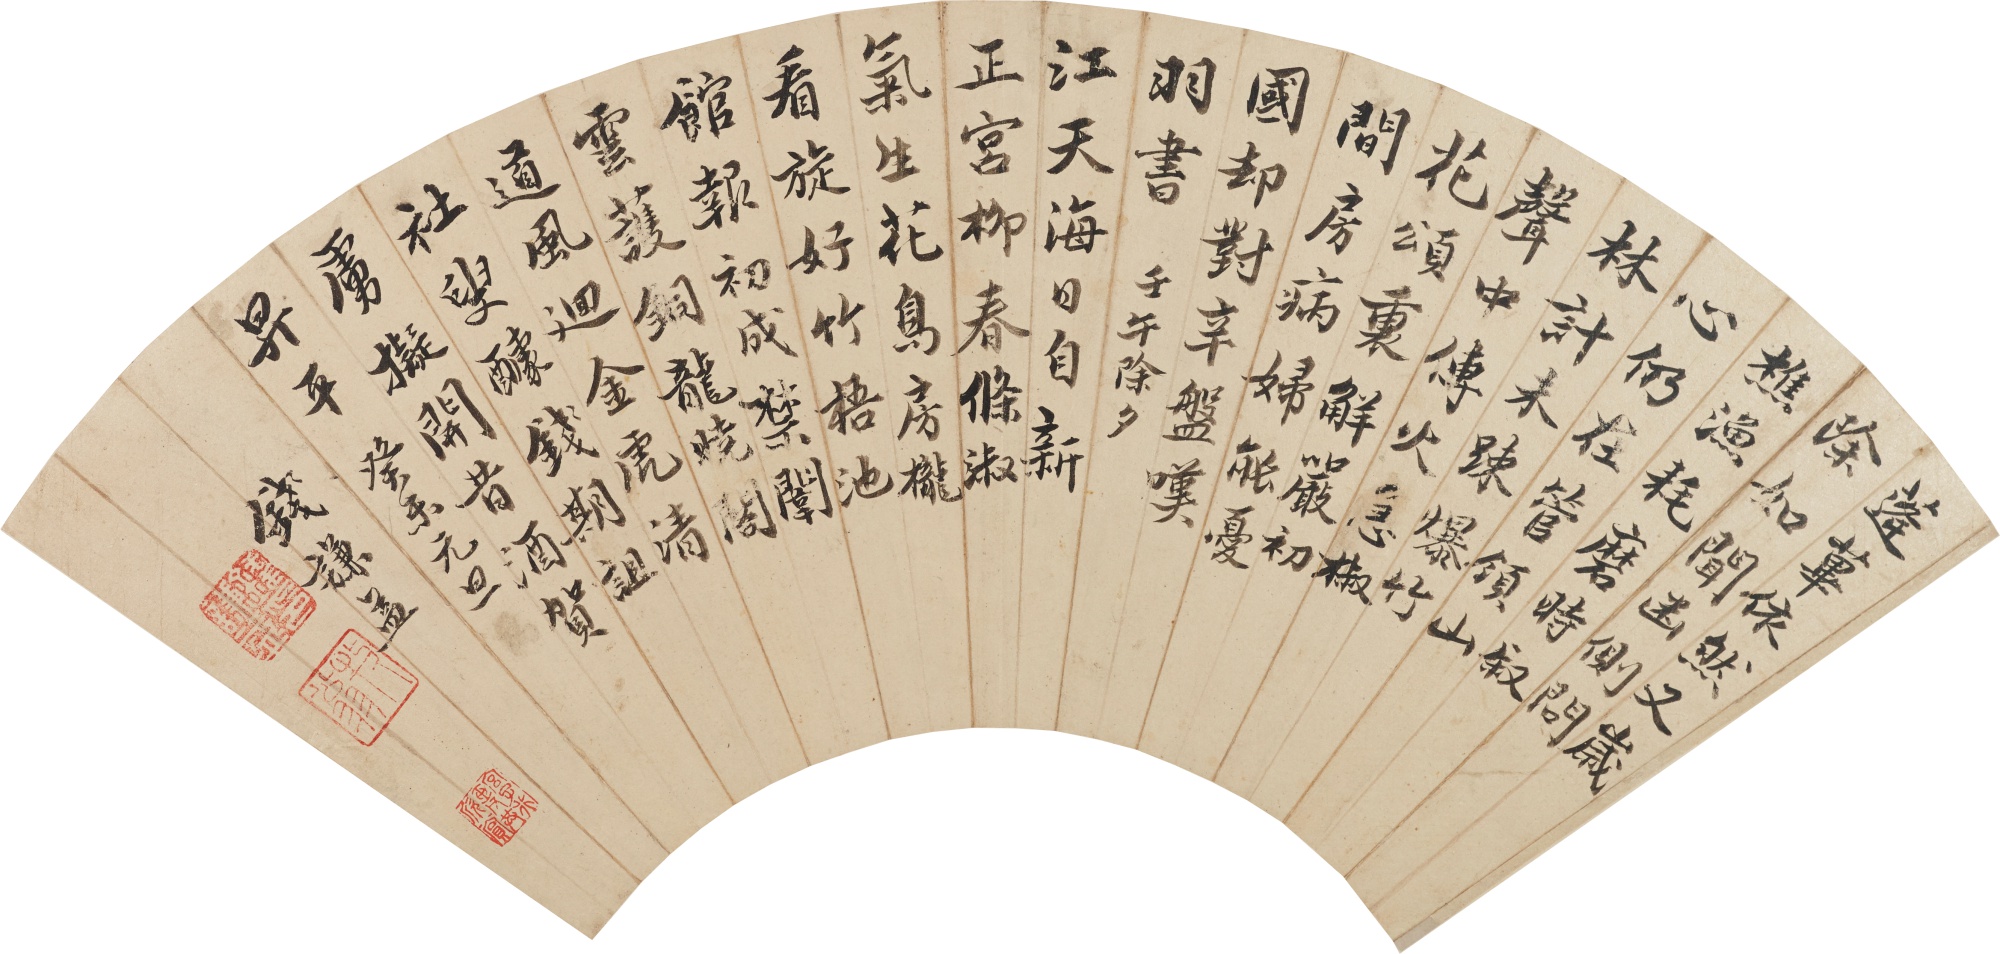 蓬蓽依然又歲
除如聞幽側問
樵漁耗磨時敘
心仍在管領山
林計未疎爆竹
聲中傳火急椒
花頌裏解嚴初
間房病婦能憂
國却對辛盤嘆
羽書 壬午除夕
江天海日自新
正宮柳春條淑
氣生花鳥房櫳
看旋好竹梧池
館報初成禁闈
雲護銅龍曉閣
道風迴金虎清
社學醵錢期詛
虜擬開昔酒賀
昇平 癸未元旦
錢謙益